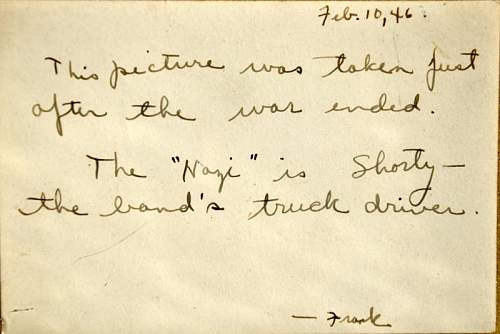 Feb. 10, 46.
This picture was taken just
after the war ended.
The "Nazi" is Shorty—
the band's truck driver.
— Frank